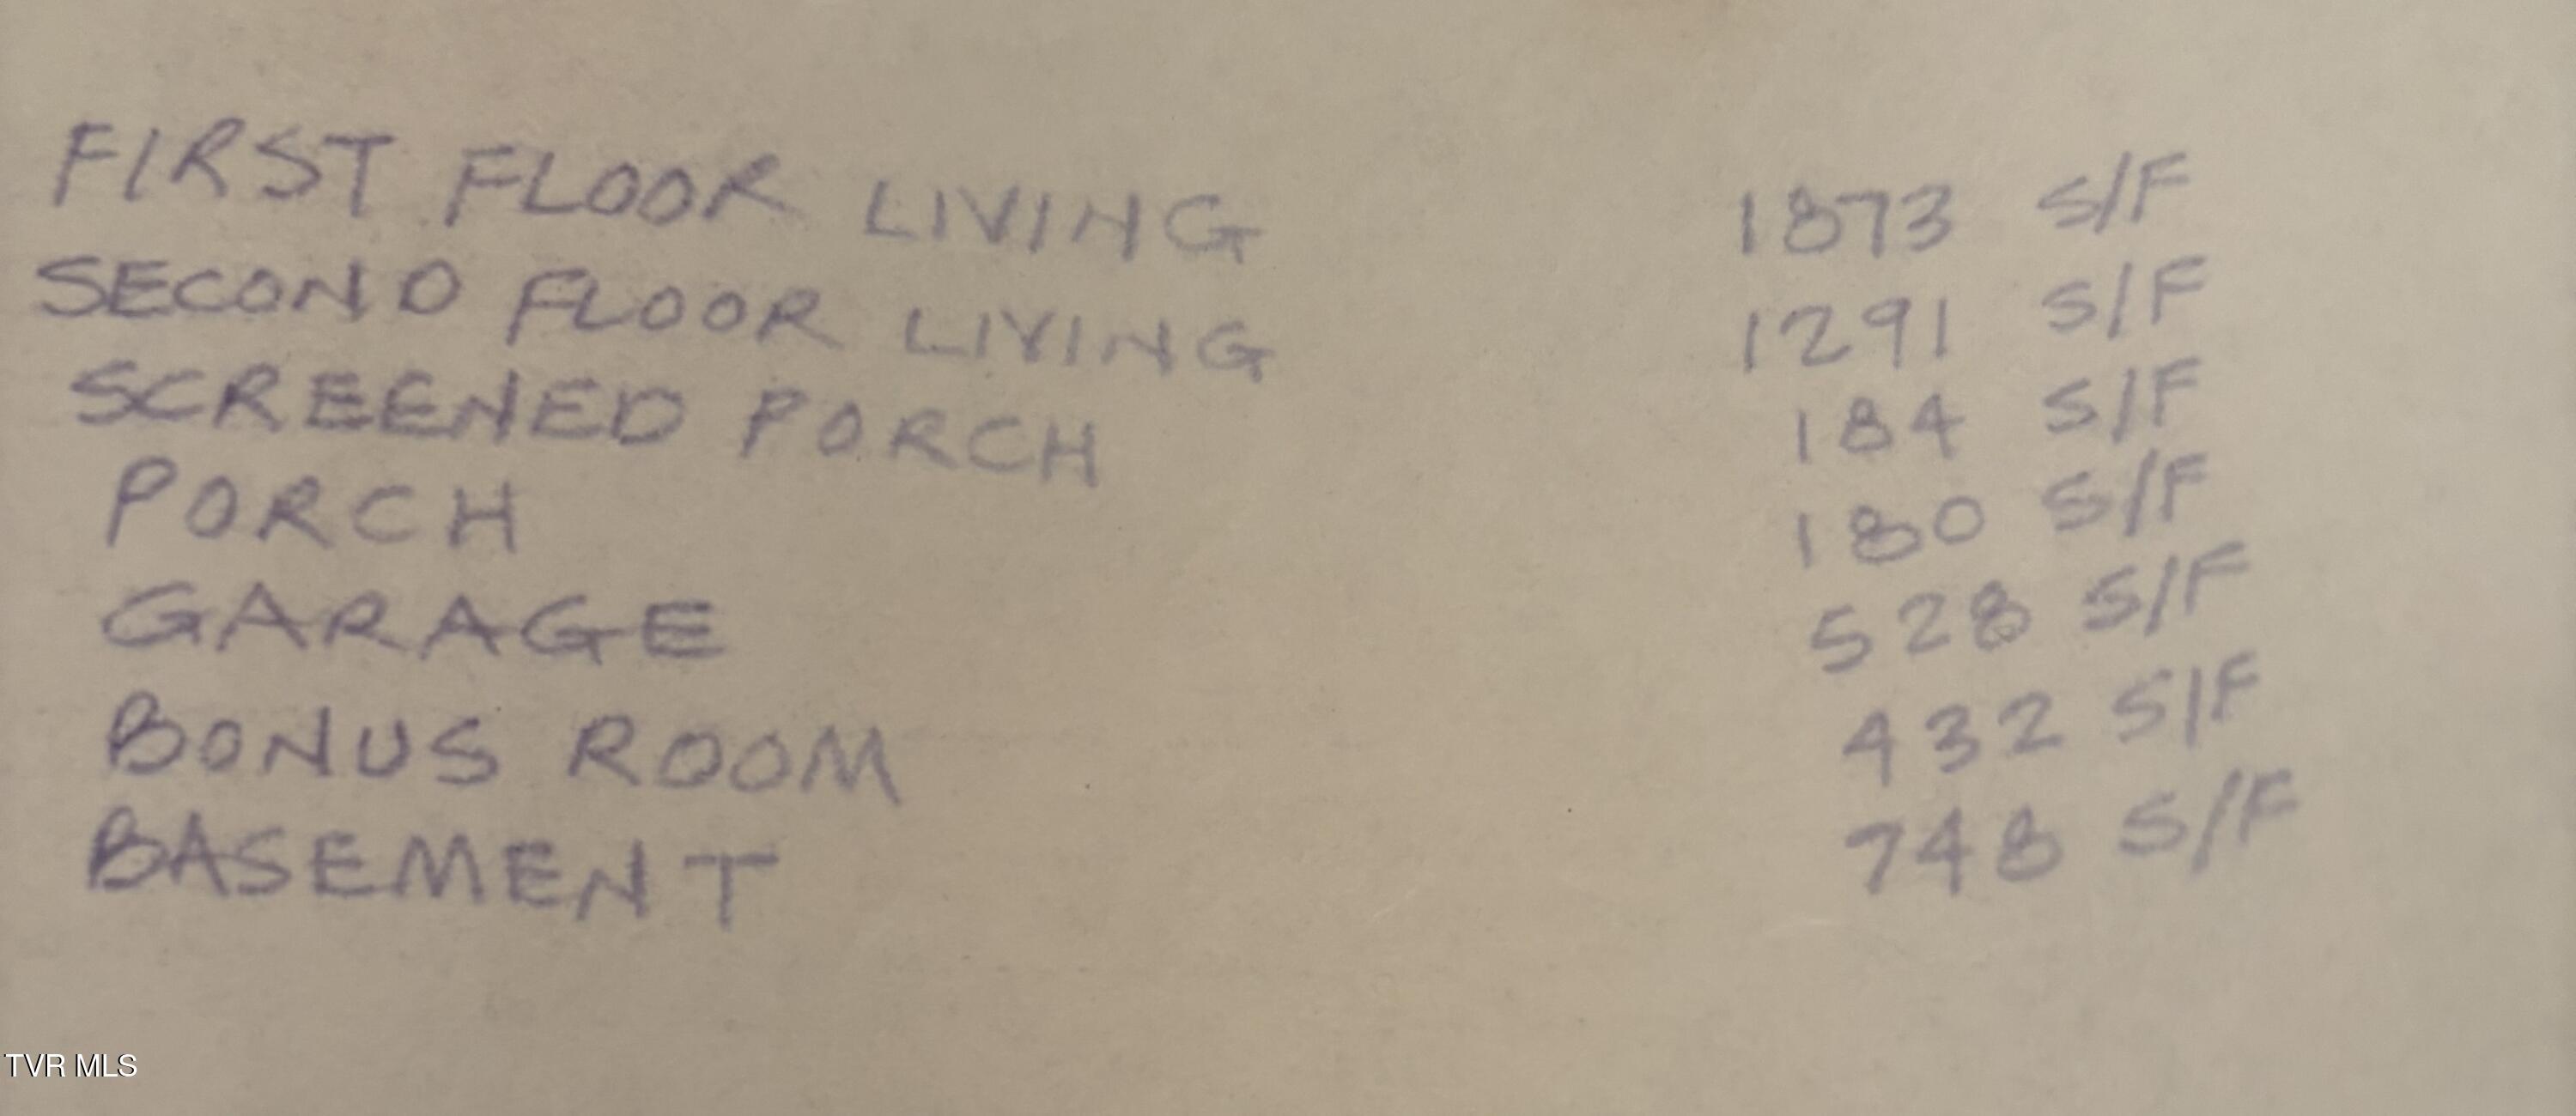 FIRST FLOOR LIVING 1873 S/F
SECOND FLOOR LIVING 1291 S/F
SCREENED PORCH 184 S/F
PORCH 180 S/F
GARAGE 528 S/F
BONUS ROOM 432 S/F
BASEMENT 748 S/F
TVR MLS